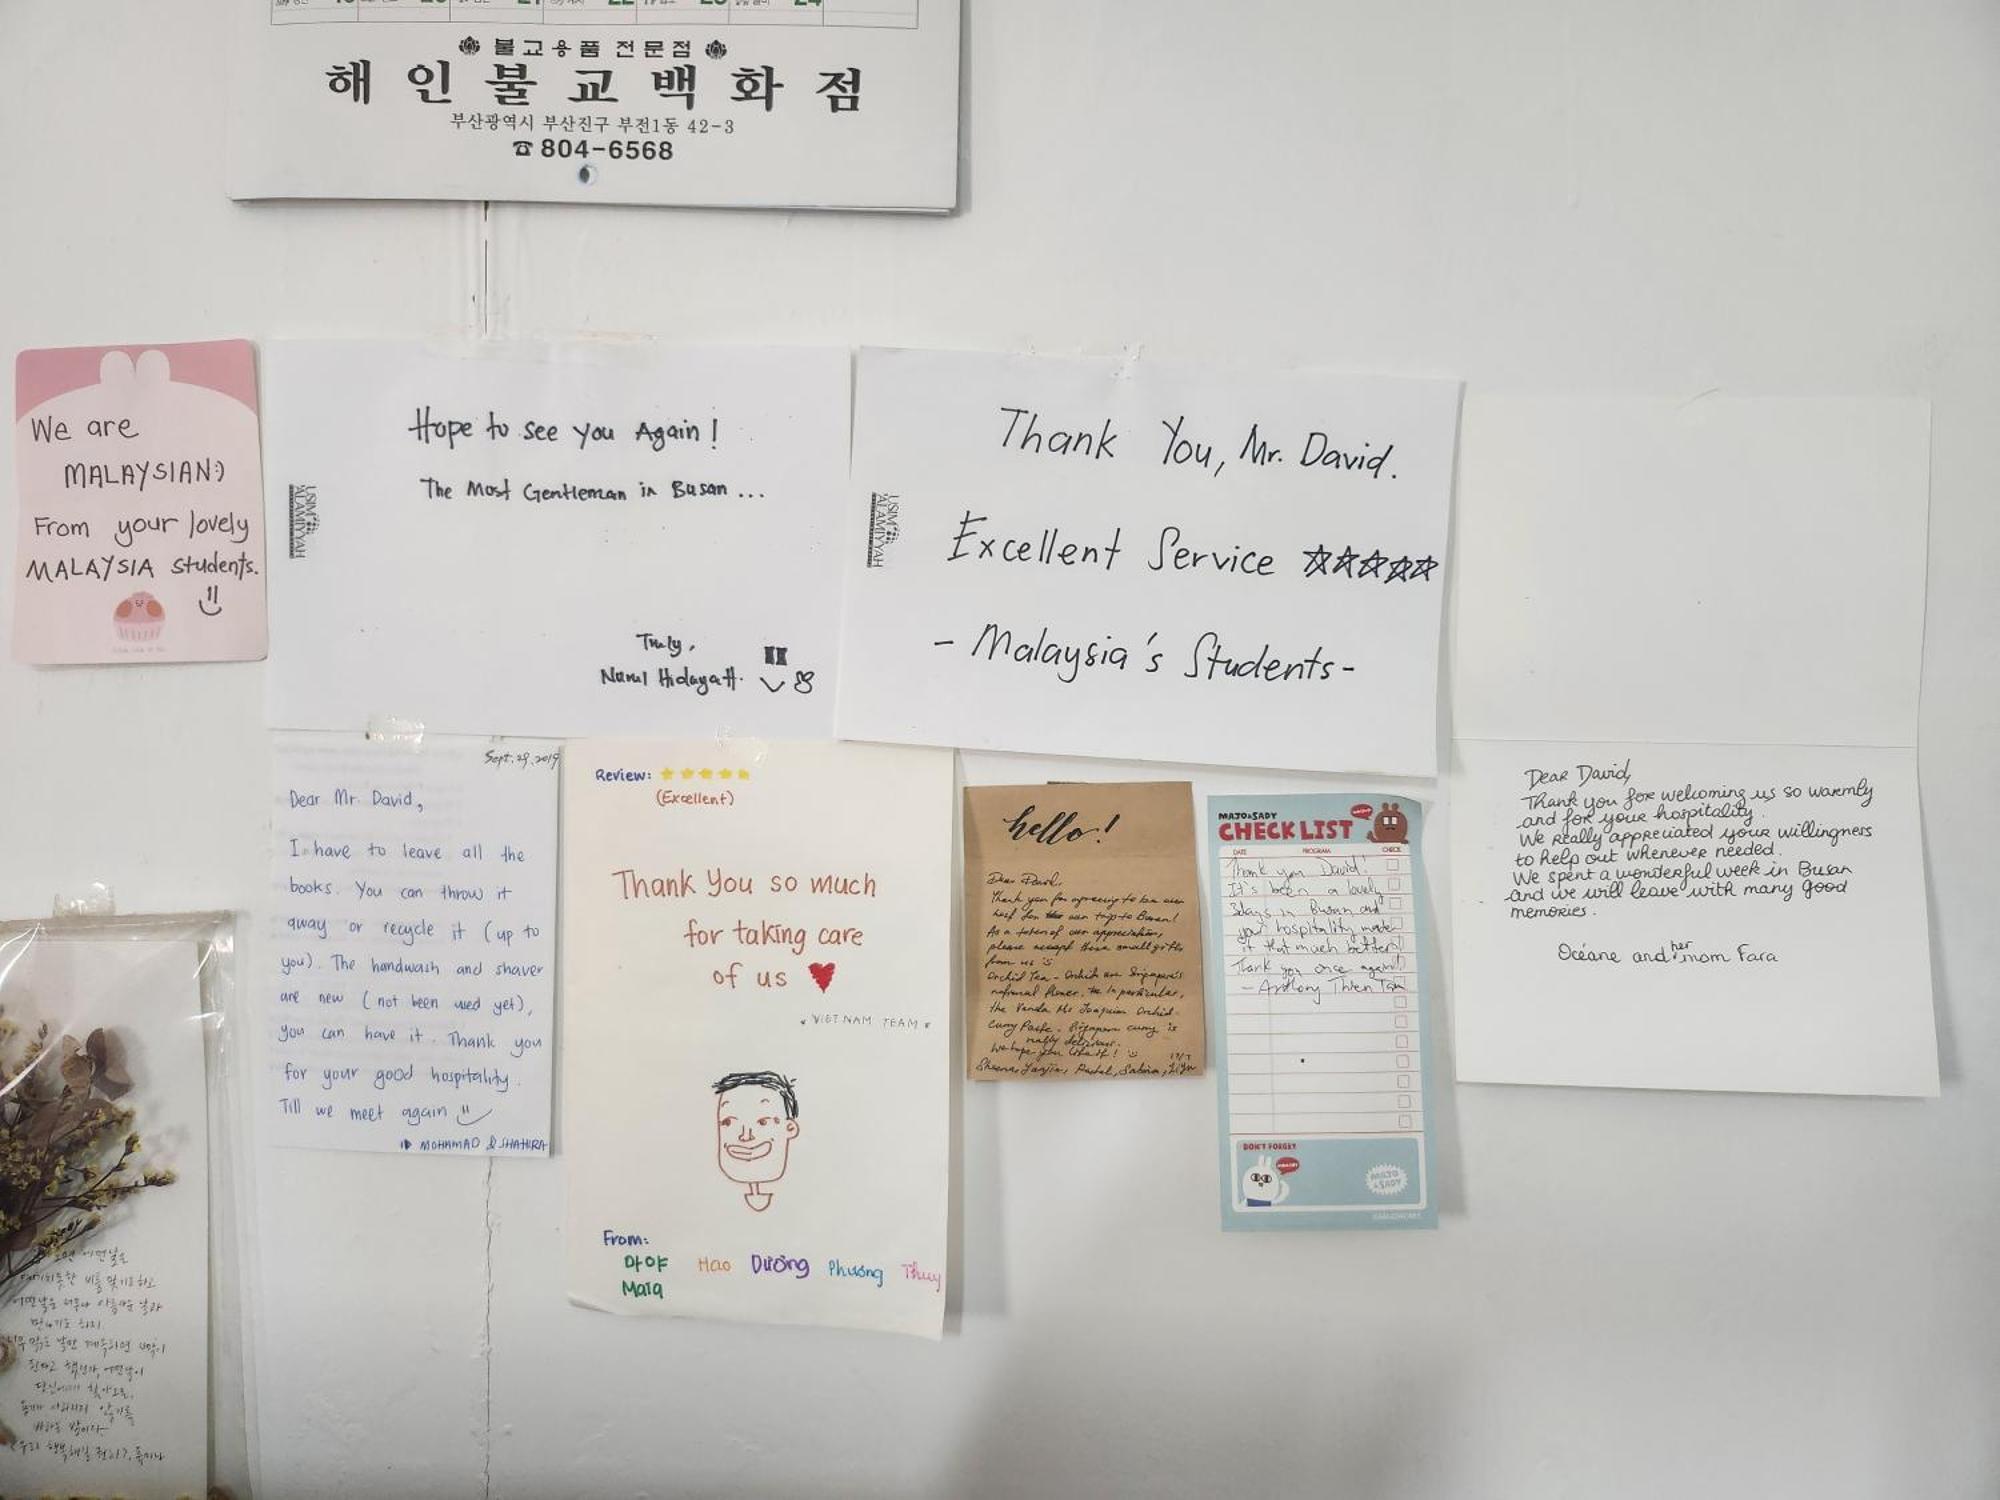 불교용품 전문점
해인불교백화점
부산광역시 부산진구 부전1동 42-3
☎804-6568
We are
MALAYSIAN:)
From your lovely
MALAYSIA students.
Hope to see you Again!
The Most Gentleman in Busan ...
Truly,
Nurul Hidayah.
USIM
'ALAMIYYAH
Thank You, Mr. David.
Excellent Service ☆☆☆☆☆
- Malaysia's Students-
USIM
'ALAMIYYAH
Sept. 29, 2019
Dear Mr. David,
I have to leave all the
books. You can throw it
away or recycle it (up to
you). The handwash and shaver
are new (not been used yet),
you can have it. Thank you
for your good hospitality.
Till we meet again
MOHAMAD & SHAHIRA
Review: ★★★★★
(Excellent)
Thank You so much
for taking care
of us ♥
VIETNAM TEAM
From:
마야 Hao Dương Phương Thuy
Maia
hello!
Dear David,
Thank you for agreeing to be our
host for our trip to Busan!
As a token of our appreciation,
please accept these small gifts
from us
Orchid Tea - Orchid are Singapore's
national flower, in particular,
the Vanda Ms Joaquim Orchid.
Curry Paste. Singapore curry is
really delicious.
We hope you like it!
MAJO&SADY
CHECK LIST
DATE PROGRAM CHECK
Thank you David!
It's been a lovely
3days in Busan and
your hospitality made
it that much better!
Thank you once again!
- Anthony Thien Tan
DON'T FORGET
MAJO
&SADY
Dear David,
Thank you for welcoming us so warmly
and for your hospitality.
We really appreciated your willingness
to help out whenever needed.
We spent a wonderful week in Busan
and we will leave with many good
memories.
Océane and her mom Fara